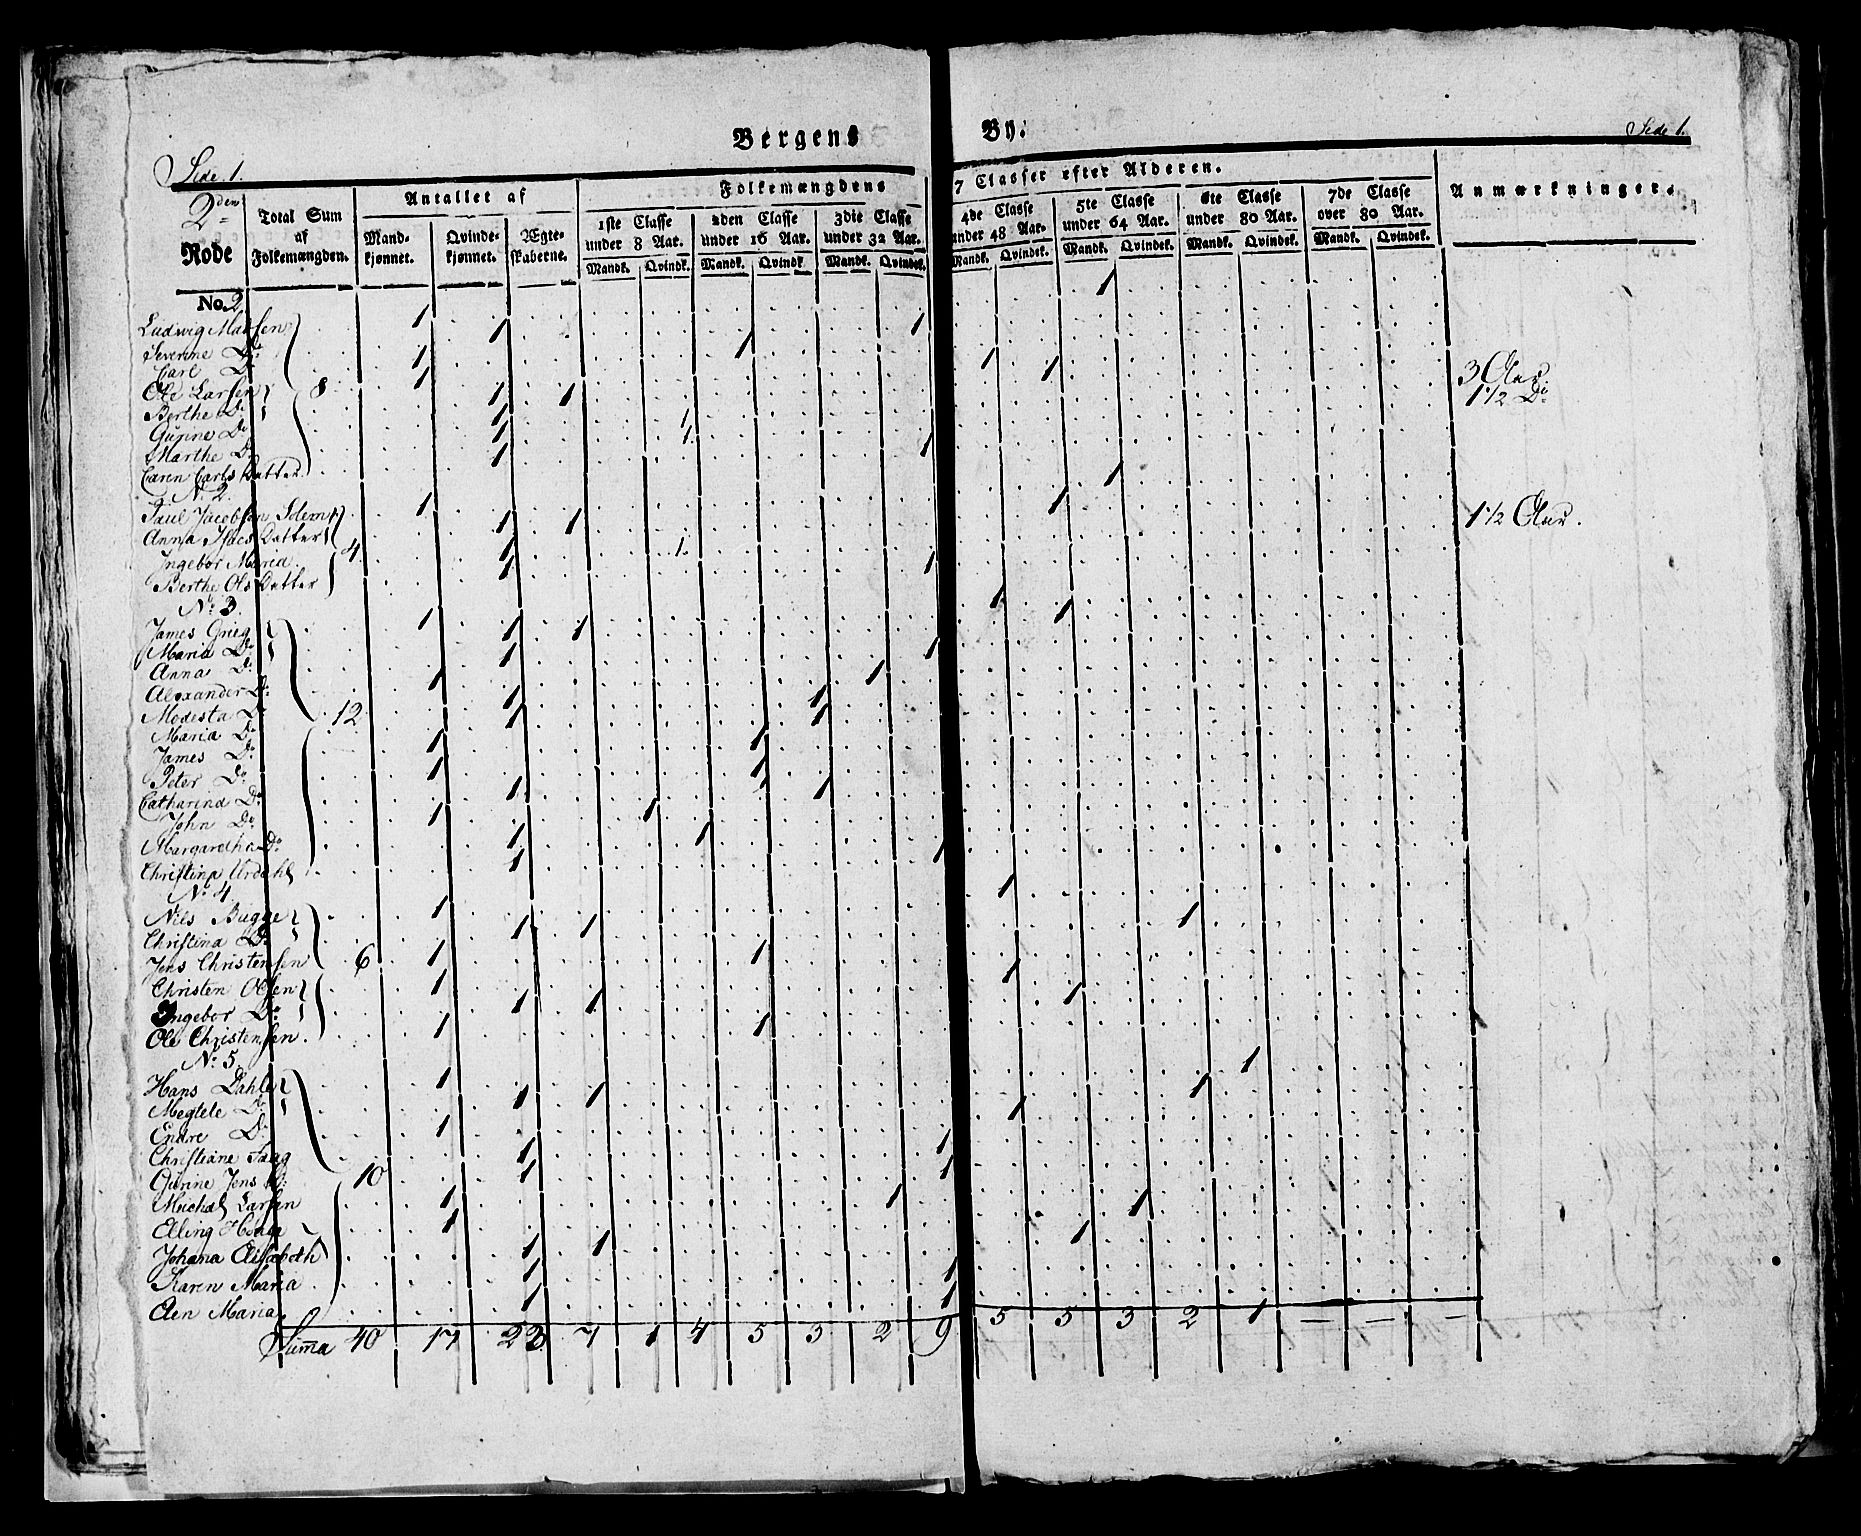 Bergens By.
Side 1. Side 1.
2den Rode
Total Sum af Folkemængden.
Antallet af
Mandkjønnet. Qvindekjønnet. Ægteskaberne.
Folkemængdens 7 Classer efter Alderen.
1ste Classe under 8 Aar. 2den Classe under 16 Aar. 3die Classe under 32 Aar. 4de Classe under 48 Aar. 5te Classe under 64 Aar. 6te Classe under 80 Aar. 7de Classe over 80 Aar.
Mandk. Qvindk. Mandk. Qvindk. Mandk. Qvindek. Mandk. Qvindek. Mandk. Qvindek. Mandk. Qvindek. Mandk. Qvindek.
Anmærkninger.
No. 2
Ludwig Madsen 1 1
Severine Do 1 1
Carl Do 1 1
Ole Larsen 8 1 1
Berthe Do 1 1 1
Gurine Do 1 1 3 Aar
Marthe Do 1 1 1 1/2 Do
Caren Carls Datter 1 1
No. 2.
Paul Jacobsen Solem 1 1
Anna Isacs Datter 1 1 1
Ingebor Maria 4 1 1 1 1/2 Aar.
Berthe Ols Datter 1 1
No. 3.
James Grieg 1 1
Maria Do 1 1 1
Anna Do 1 1
Alexander Do 1 1
Modesta Do 12 1 1
Maria Do 1 1
James Do 1 1
Peter Do 1 1
Catharina Do 1 1
John Do 1 1
Margaretha Do 1 1
Christina Urdahl 1 1
No. 4
Nils Bugge 1 1
Christina Do 1 1 1
Jens Christensen 6 1 1
Christen Olsen 1 1
Ingebor Do 1 1 1
Ole Christensen 1 1
No. 5.
Hans Dahle 1 1
Megtele Do 1 1 1
Endre Do 1 1
Christiane Faag 1 1
Gurine Jens D: 10 1 1
Michal Larsen 1 1
Elling 1 1
Johana Elisabeth 1 1 1
Karen Maria 1 1
Aen Maria 1 1
Suma 40 17 23 7 1 4 5 3 2 9 5 5 3 2 1 — — —